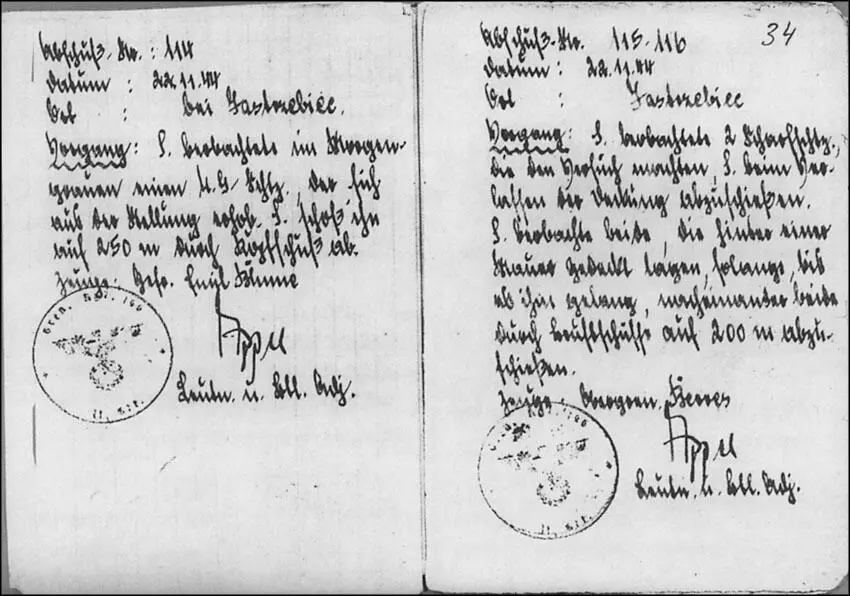 Abschuß-Nr. : 114
Datum : 22.11.44
Ort : bei Jastrzebiec.
Vorgang: S. beobachtete im Morgen-
grauen einen M.G-Schtz., der sich
aus der Stellung erhob. S. schoß ihn
auf 250 m durch Kopfschuß ab.
Zeuge: Gefr. Emil Blume
Appel
Leutn. u. Btl. Adj.
34
Abschuß-Nr. 115-116
Datum : 22.11.44
Ort : Jastrzebiec
Vorgang: S. beobachtete 2 Scharfschtz.,
die den Versuch machten, S. beim Ver-
lassen der Deckung abzuschießen.
S. beobachte beide, die hinter einer
Mauer gedeckt lagen, solange, bis
es ihm gelang, nacheinander beide
durch Brustschüsse auf 200 m abzu-
schießen.
Zeuge: Obergren.
Appel
Leutn. u. Btl. Adj.